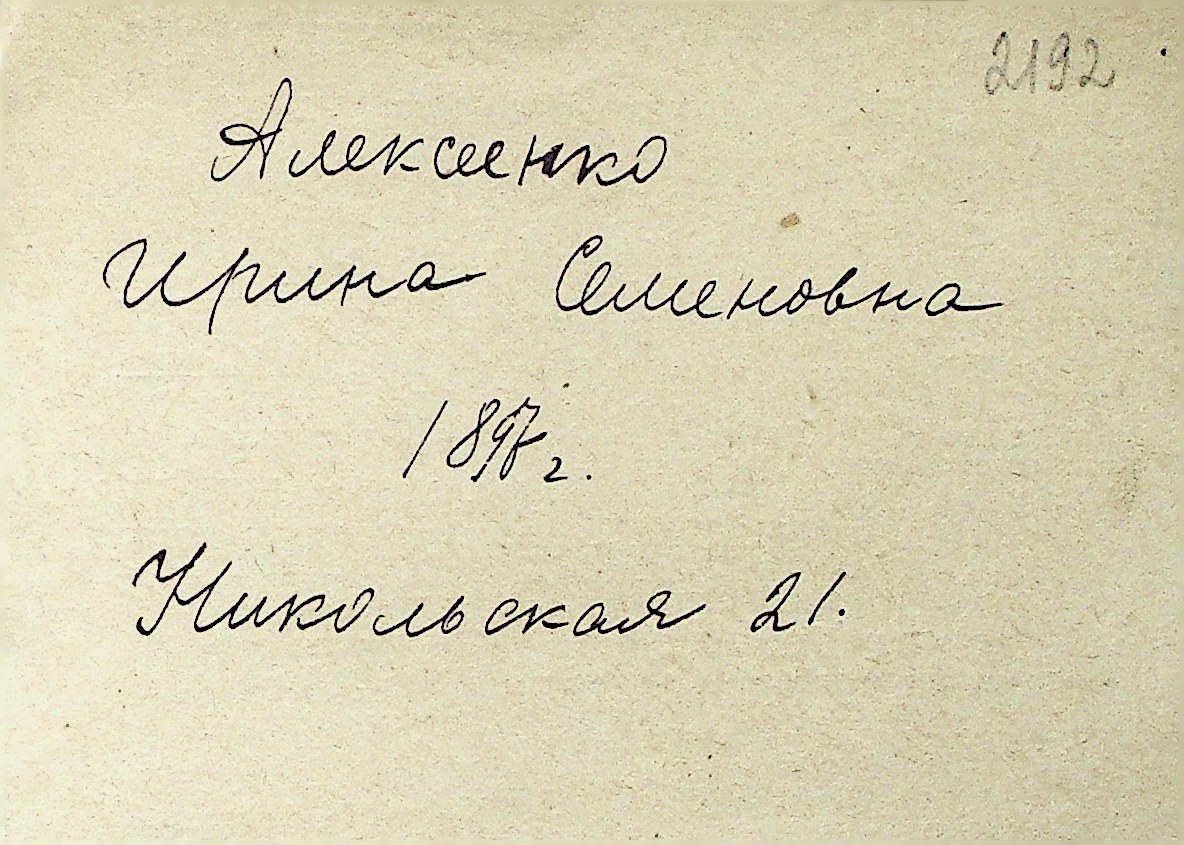 2192
Алексеенко
Ирина Семеновна
1897 г.
Никольская 21.